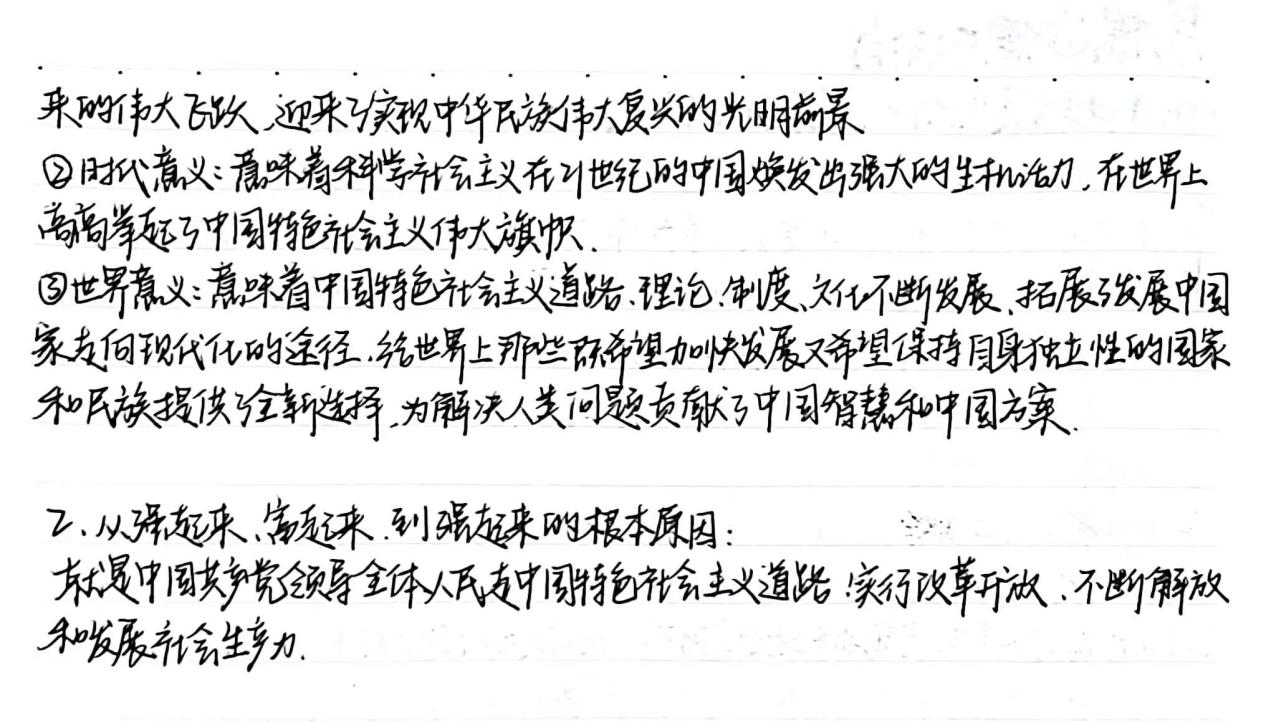 来的伟大飞跃，迎来了实现中华民族伟大复兴的光明前景
②时代意义：意味着科学社会主义在21世纪的中国焕发出强大的生机活力，在世界上
高高举起了中国特色社会主义伟大旗帜．
③世界意义：意味着中国特色社会主义道路、理论、制度、文化不断发展、拓展了发展中国
家走向现代化的途径．给世界上那些既希望加快发展又希望保持自身独立性的国家
和民族提供了全新选择，为解决人类问题贡献了中国智慧和中国方案．
2、从强起来、富起来．到强起来的根本原因：
就是中国共产党领导全体人民走中国特色社会主义道路．实行改革开放、不断解放
和发展社会生产力．